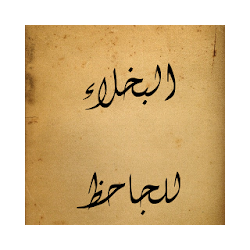 البخلاء
للجاحظ